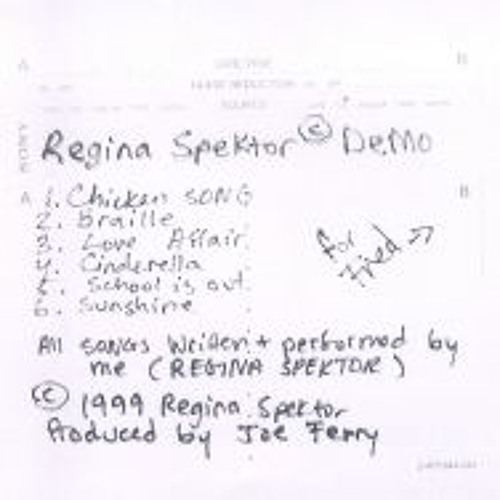 A DATE/TIME B
NOISE REDUCTION
Regina Spektor © DeMo
A B
1. Chicken SONG
2. Braille
3. Love Affair
4. Cinderella
5. School is out
6. Sunshine
for
Fred →
All songs written + performed by
me (REGINA SPEKTOR)
© 1999 Regina Spektor
Produced by Joe Ferry